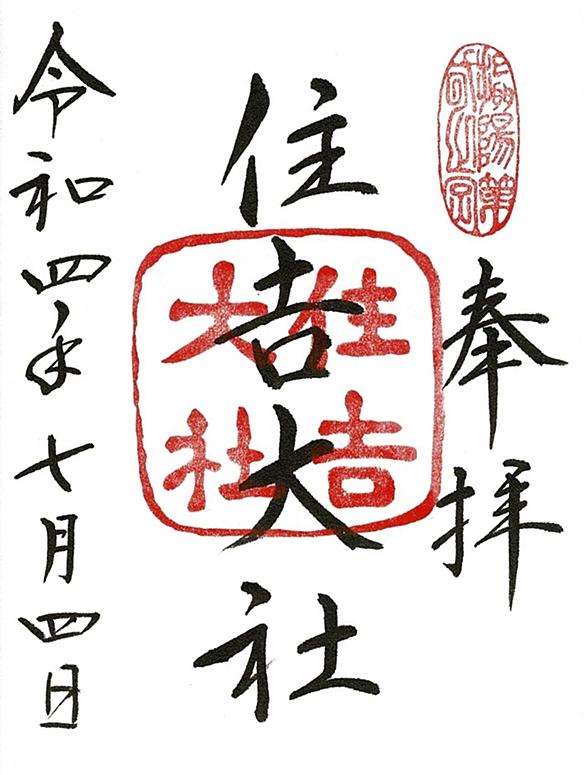 奉拝
住吉大社
住吉
大社
令和四年七月四日